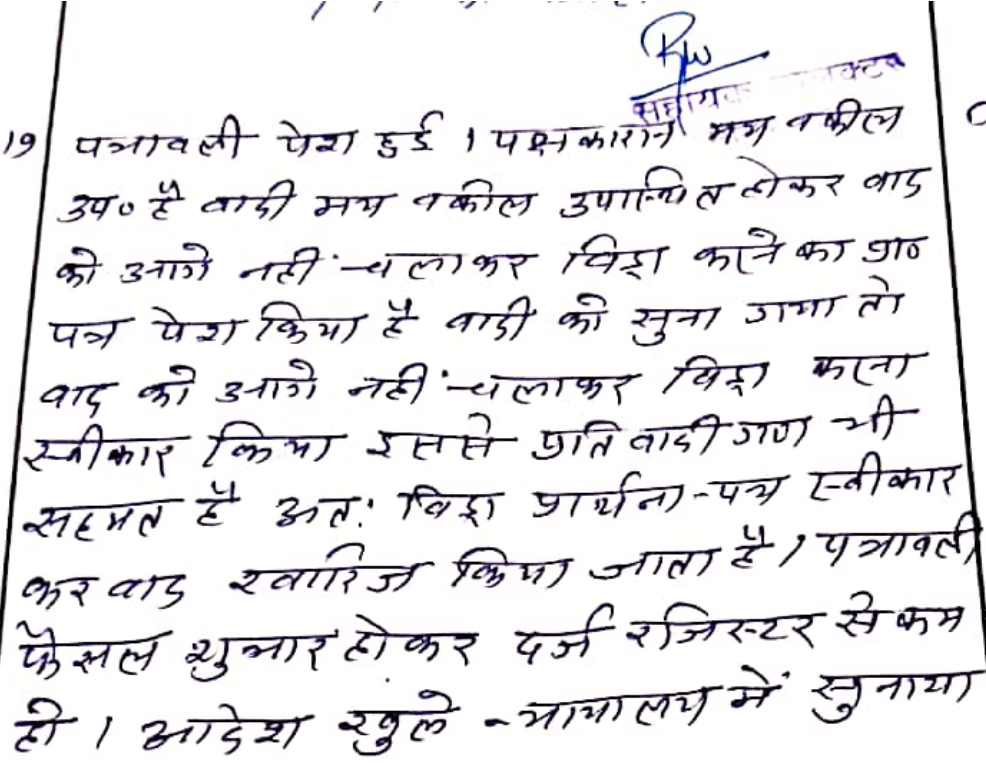 सहायक कलक्टर
19 पत्रावली पेश हुई । पक्षकारान मय वकील
उप० है वादी मय वकील उपस्थित होकर वाद
को आगे नहीं चलाकर विड्रा करने का प्रा०
पत्र पेश किया है वादी को सुना गया तो
वाद को आगे नहीं चलाकर विड्रा करना
स्वीकार किया इससे प्रतिवादी गण भी
सहमत है अत: विड्रा प्रार्थना-पत्र स्वीकार
कर वाद खारिज किया जाता है । पत्रावली
फैसल शुमार होकर दर्ज रजिस्टर से कम
हो । आदेश खुले न्यायालय में सुनाया